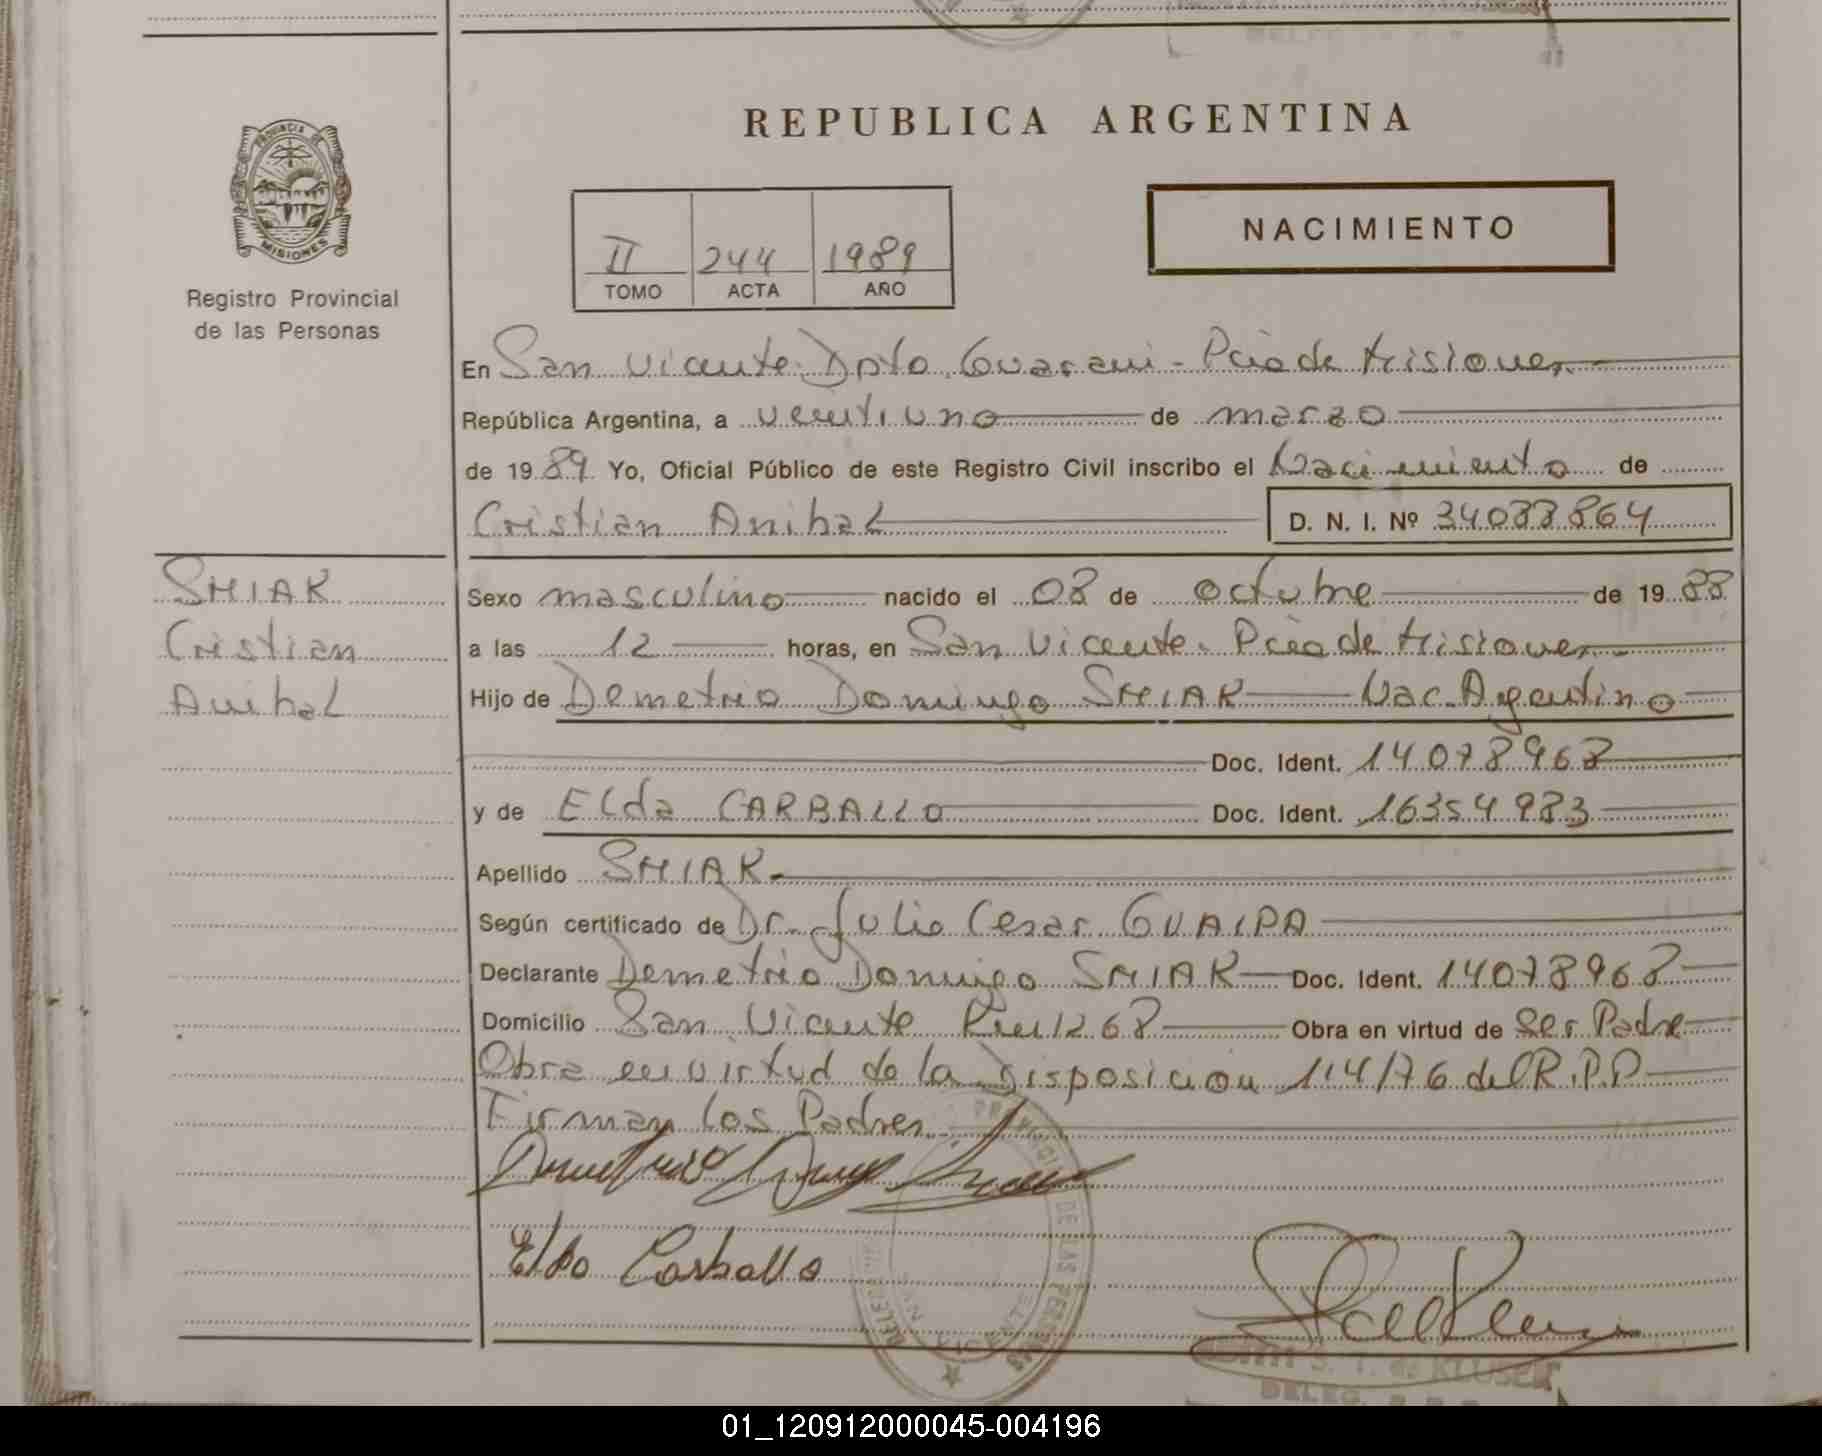 REPUBLICA ARGENTINA
PROVINCIA DE
MISIONES
Registro Provincial
de las Personas
NACIMIENTO
II 244 1989
TOMO ACTA AÑO
En San Vicente. Dpto. Guarani - Pcia de Misiones
República Argentina, a veintiuno de marzo
de 1989 Yo, Oficial Público de este Registro Civil inscribo el Nacimiento de
Cristian Anibal D. N. I. Nº 34033864
SMIAK
Cristian
Anibal
Sexo masculino nacido el 08 de octubre de 1988
a las 12 horas, en San Vicente. Pcia de Misiones
Hijo de Demetrio Domingo SMIAK Nac. Argentino
Doc. Ident. 14078968
y de Elda CARBALLO Doc. Ident. 16354983
Apellido SMIAK
Según certificado de Dr. Julio Cesar GUAIPA
Declarante Demetrio Domingo SMIAK Doc. Ident. 14078968
Domicilio San Vicente Km 1268 Obra en virtud de Ser Padre
Obra en virtud de la Disposicion 114/76 del R.P.P
Firman los Padres
Elda Carballo
DE LAS PERSONAS
SAN VICENTE
S. T. de KLUSER
DELEG.
01_120912000045-004196